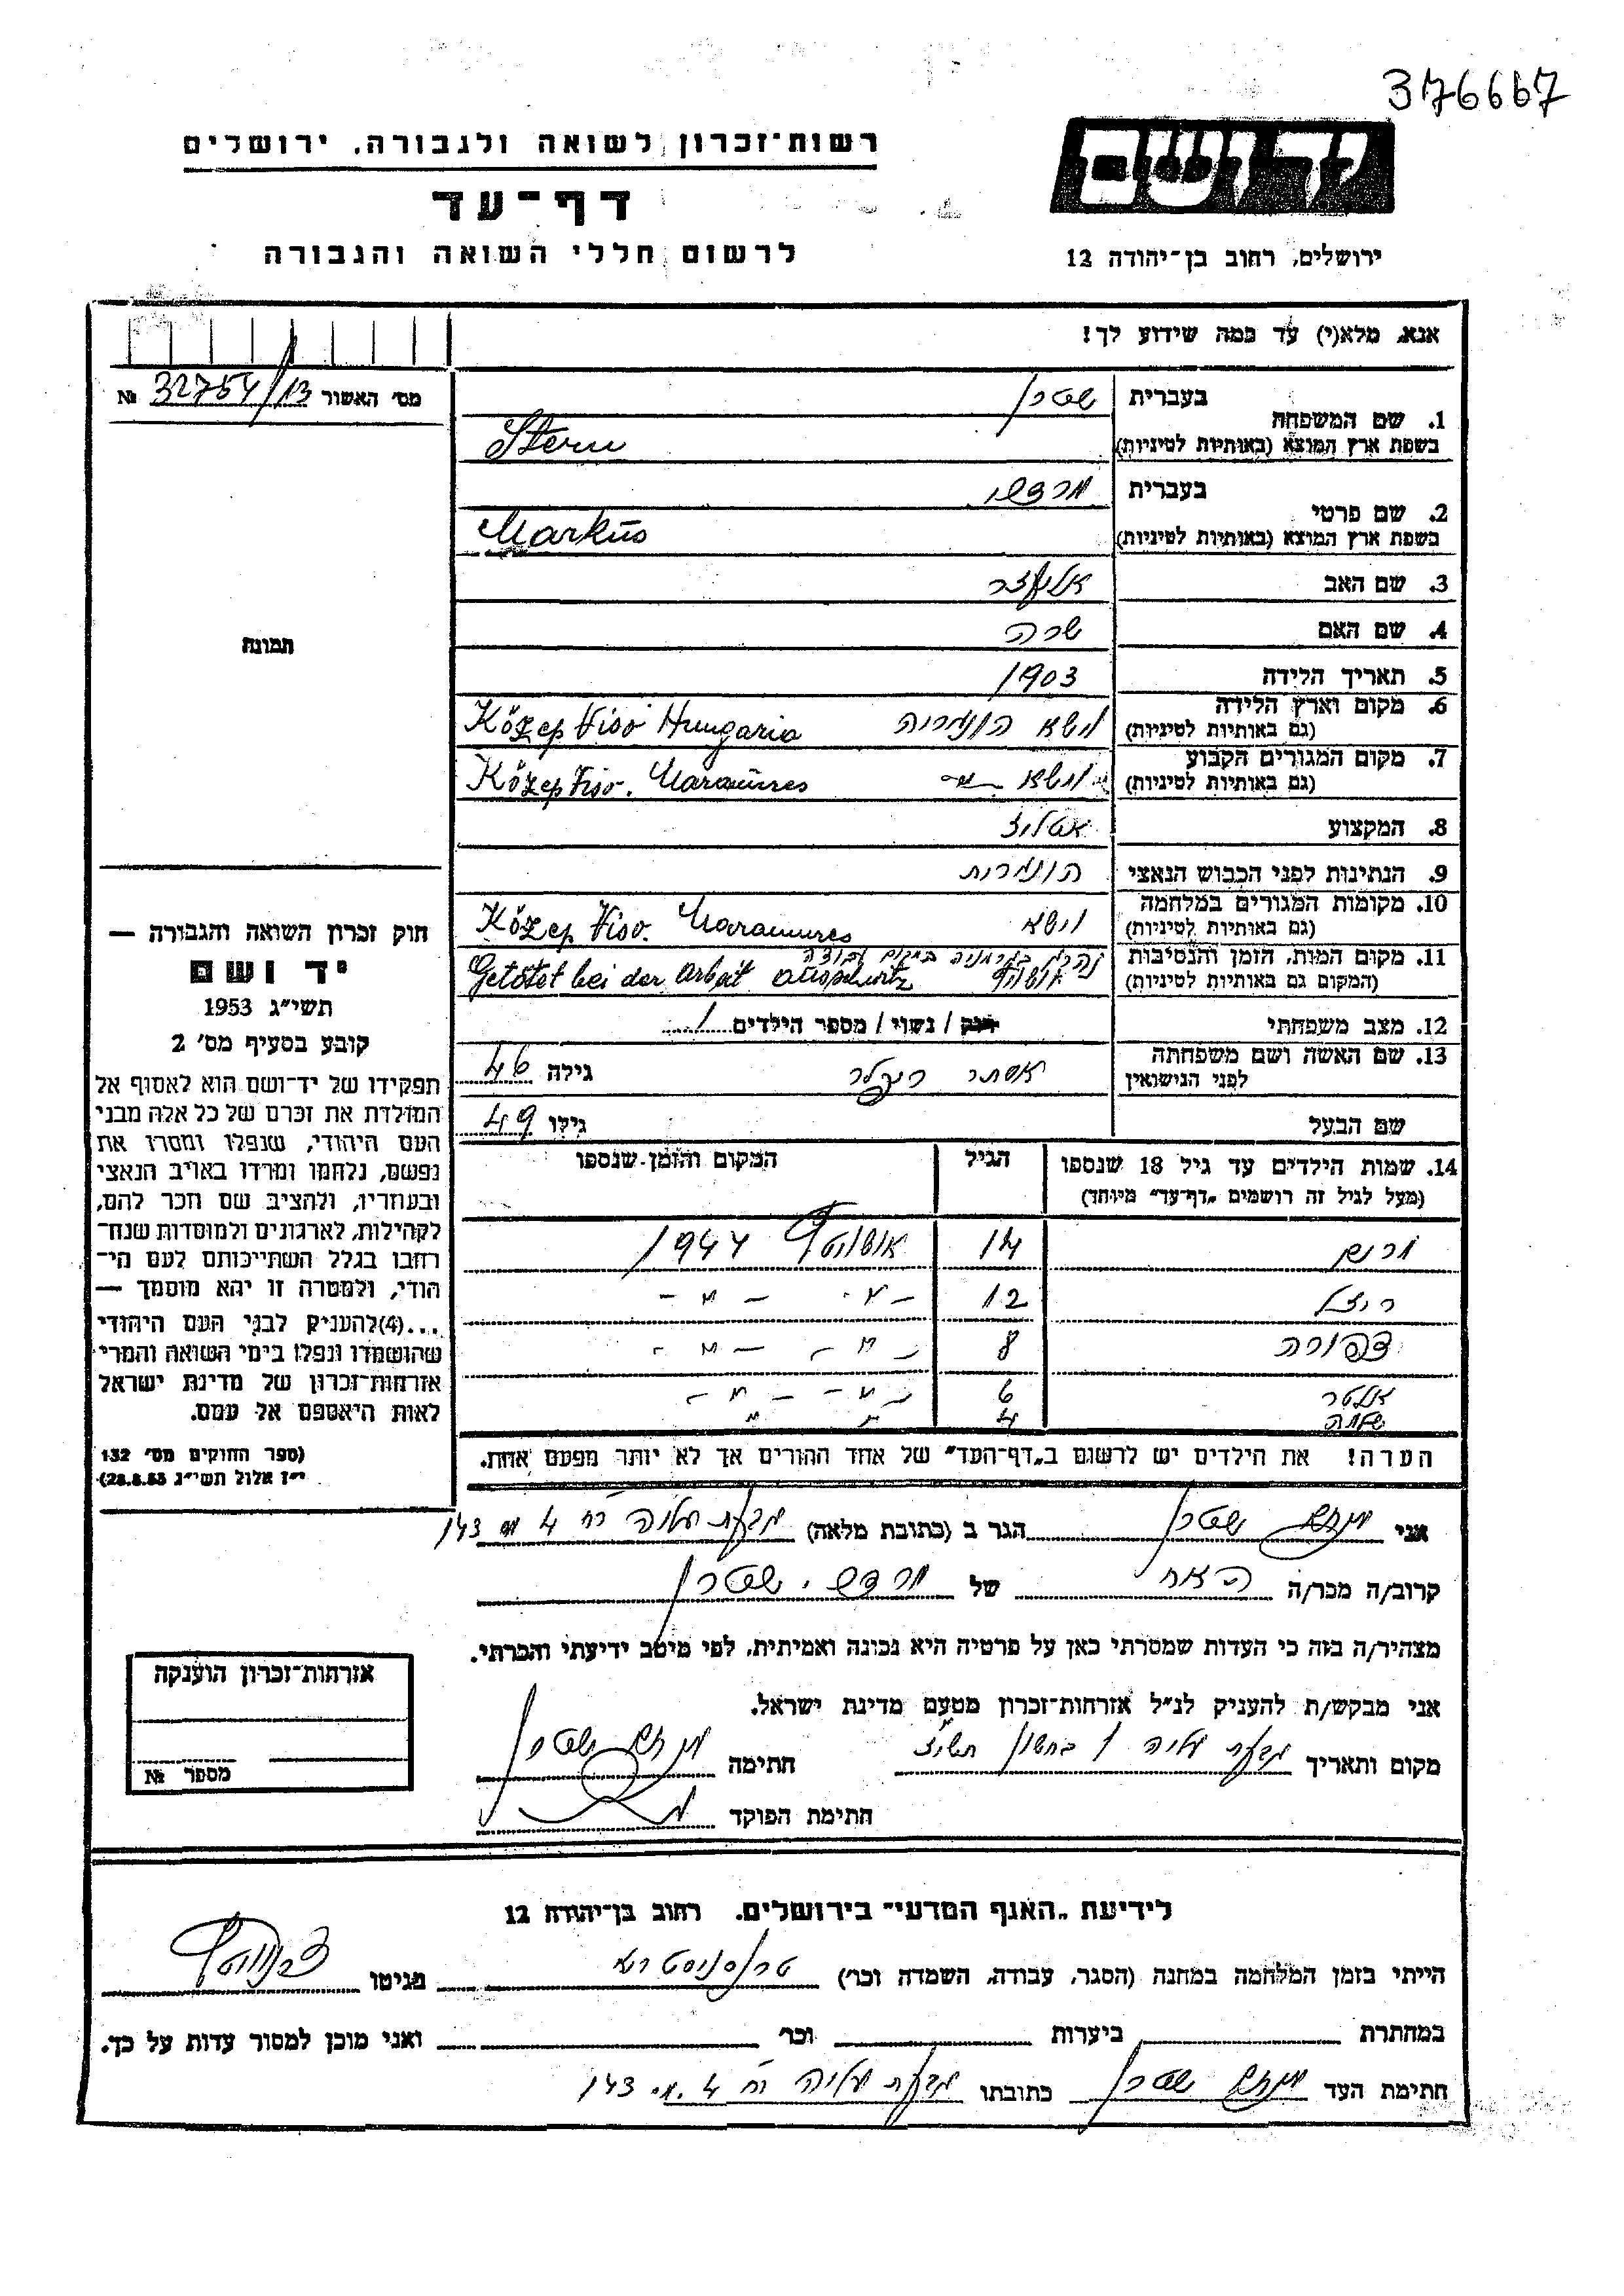 376667
יד ושם
רשות־זכרון לשואה ולגבורה, ירושלים
דף־עד
לרשום חללי השואה והגבורה
ירושלים, רחוב בן־יהודה 12
אנא, מלא(י) עד כמה שידוע לך!
מס׳ האשור 32754/13 №
1. שם המשפחה בעברית שטרן
בשפת ארץ המוצא (באותיות לטיניות) Stern
2. שם פרטי בעברית מרדכי
בשפת ארץ המוצא (באותיות לטיניות) Markus
3. שם האב אליעזר
4. שם האם שרה
5. תאריך הלידה 1903
6. מקום וארץ הלידה (גם באותיות לטיניות) וישא הונגריה Közep Viso Hungaria
7. מקום המגורים הקבוע (גם באותיות לטיניות) וישא Közep Viso. Maramures
8. המקצוע
9. הנתינות לפני הכבוש הנאצי הונגרית
10. מקומות המגורים במלחמה (גם באותיות לטיניות) וישא Közep Viso. Maramures
11. מקום המות, הזמן והנסיבות (המקום גם באותיות לטיניות) נהרג בגרמניה במקום עבודה
אושויץ Getötet bei der arbeit Auschwitz
12. מצב משפחתי רווק / נשוי / מספר הילדים
13. שם האשה ושם משפחתה לפני הנישואין אסתר גילה 46
שם הבעל גילו 49
14. שמות הילדים עד גיל 18 שנספו
(מעל לגיל זה רושמים „דף־עד” מיוחד)
הגיל
המקום והזמן שנספו
14 אושויץ 1944
ריזל 12 - ״ - ״ -
צפורה 8 - ״ - ״ -
אלטר 6 - ״ - ״ -
4 ״ ״
הערה! את הילדים יש לרשום ב„דף־העד” של אחד ההורים אך לא יותר מפעם אחת.
תמונה
חוק זכרון השואה והגבורה —
יד ושם
תשי״ג 1953
קובע בסעיף מס׳ 2
תפקידו של יד־ושם הוא לאסוף אל
המולדת את זכרם של כל אלה מבני
העם היהודי, שנפלו ומסרו את
נפשם, נלחמו ומרדו באויב הנאצי
ובעוזריו, ולהציב שם וזכר להם,
לקהילות, לארגונים ולמוסדות שנח־
רחבו בגלל השתייכותם לעם הי־
הודי, ולמטרה זו יהא מוסמך —
...(4)להעניק לבני העם היהודי
שהושמדו ונפלו בימי השואה והמרי
אזרחות־זכרון של מדינת ישראל
לאות היאספם אל עמם.
(ספר החוקים מס׳ 132
י״ז אלול תשי״ג 28.8.53)
אני מנחם שטרן הגר ב (כתובת מלאה) גבעת עליה רח 4 מס 143
קרוב/ה מכר/ה האח של מרדכי שטרן
מצהיר/ה בזה כי העדות שמסרתי כאן על פרטיה היא נכונה ואמיתית, לפי מיטב ידיעתי והכרתי.
אני מבקש/ת להעניק לנ״ל אזרחות־זכרון מטעם מדינת ישראל.
מקום ותאריך גבעת עליה ו בחשון חתימה מנחם שטרן
חתימת הפוקד
אזרחות־זכרון הוענקה
מספר №
לידיעת „האגף המדעי” בירושלים. רחוב בן־יהודה 12
הייתי בזמן המלחמה במחנה (הסגר, עבודה, השמדה וכו׳) טרנסניסטריא בגיטו
במחתרת ביערות וכו׳ ואני מוכן למסור עדות על כך.
חתימת העד מנחם שטרן כתובתו גבעת עליה רח 4 מס 143